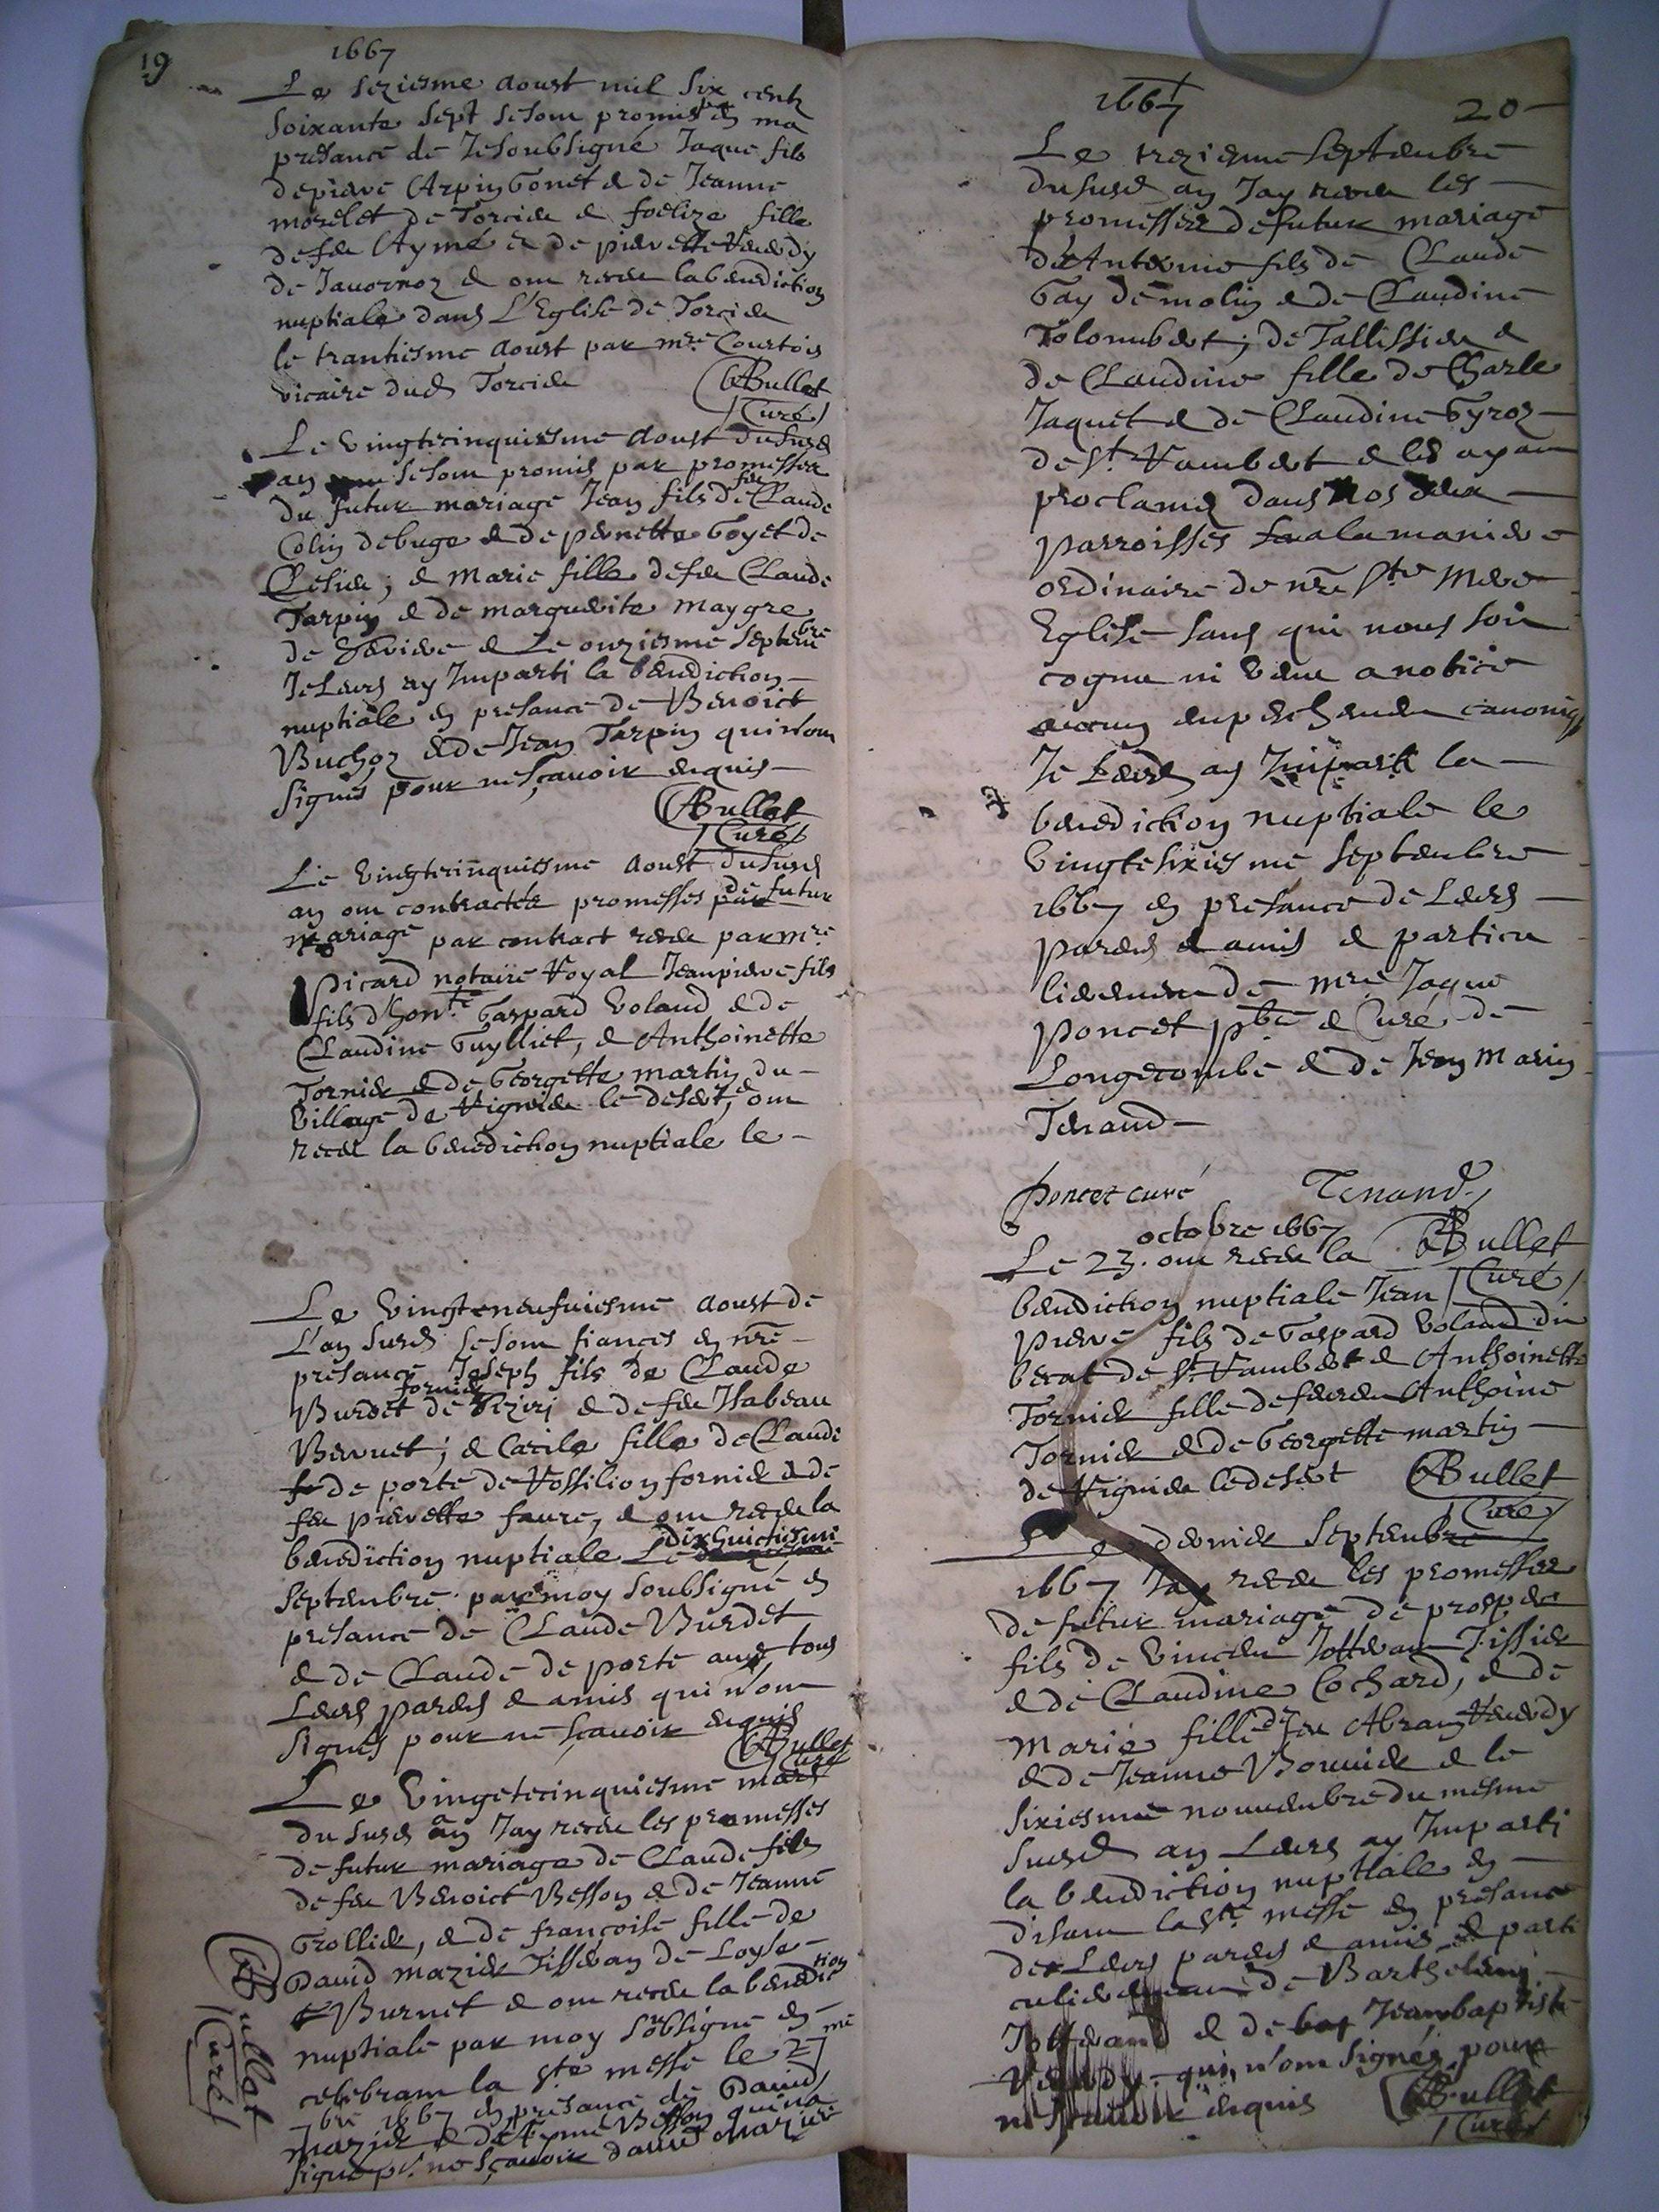 19
1667
Le seziesme aoust mil six centz
soixante sept se sont promis en ma
presance de Je soubsigné Jaque fils
de pierre Arpin Gonet & de Jeanne
morelet de Torcieu & foelize fille
de feu Aymé & de pierrette
de Javornoz & ont receu la benediction
nuptiale dans L'Eglise de Torcieu
le trantiesme aoust par mre Courtois
vicaire dud Torcieu
Bullet
Curé
Le vingtcinquiesme aoust du susd
an se sont promis par promesses
du futur mariage Jean fils de feu Claude
Colin debuge & de pernette Goyet de
Clesieu; & Marie fille de feu Claude
Tarpin & de marguerite maygre
de & Le onziesme septembre
Je Leurs ay Imparti la benediction
nuptiale en presance de Benoict
Buchoz & de Jean Tarpin qui n'ont
signés pour ne sçavoir enquis
Bullet
Curé
Le vingtcinquiesme aoust du susd
an ont contractés promesses de futur
mariage par contract receu par mre
picard notaire Royal Jean pierre fils
fils d'honte Gaspard Voland & de
Claudine Guylliet, & Anthoinette
Tornier & de Georgette martin du
village de Vignieu le desert, & ont
receu la benediction nuptiale le
Le vingteneufviesme aoust de
L'an susd se sont fiancés en nre
presance Joseph fils de Claude
Burdet fornier de & de feu Isabeau
Bervet; & Cecile fille de Claude
de porte de Rossilion fornier & de
feu pierrette faure, & ont receu la
benediction nuptiale Le dixhuictiesme
septembre par moy soubsigné en
presance de Claude Burdet
& de Claude de porte avec tous
Leurs parens & amis qui n'ont
signés pour ne sçavoir enquis
Bullet
Curé
Le vingtecinquiesme mars
du susd an Jay receu les promesses
de futur mariage de Claude fils
de feu Benoict Besson & de Jeanne
Trollier, & de françoise fille de
David mazier Tisseran de Loyse
Burnet & ont receu la benediction
nuptiale par moy soubsigné en
celebrant la ste messe le 27me
7bre 1667 en presance de David
Mazier & d'Aymé Besson qui n'a
signé pr ne sçavoir david mazier
Bullet
Curé
1667
20
Le treziesme Septembre
du susd an Jay receu les
promesses de futur mariage
d'Anteome fils de Claude
Gay de molin & de Claudine
Tolombert; de Tallissieu &
de Claudine fille de Charle
Jaquet & de Claudine Gyroz
de St Rambert & les ayant
proclamés dans nos deux
parroisses a la maniere
ordinaire de nre Ste Mere
Eglise sans qui nous soit
cognu ni venu a notice
aucun empeschement canoniq
Je Leurs ay Imparti la
benediction nuptiale le
vingtesixiesme septembre
1667 en presance de Leurs
parens & amis & particu
lierement de mre Jaque
poncet pbre & Curé de
Longecombe & de Jean Marin
Tenand
poncet curé
Tenand
Bullet
Curé
octobre 1667
Le 23. ont receu la
benediction nuptiale Jean
pierre fils de Gaspard Voland dit
berat de St Rambert & Anthoinette
Tornier fille de feu Anthoine
Tornier & de Georgette martin
de Vignieu le desert
Bullet
Curé
Le dernier Septembre
1667 Jay receu les promesses
de futur mariage de prosper
fils de vincent Jotteran Tissier
& de Claudine Cochard, & de
Marie fille de feu Abram
& de Jeanne Bonnier & le
sixiesme nouvembre du mesme
susd an Leurs ay Imparti
la benediction nuptiale en
disant la ste messe en presance
de Leurs parens & amis & parti
culierement de Barthelemi
Jotterand & de Jeanbaptiste
qui n'ont signés pour
ne sçavoir enquis
Bullet
Curé